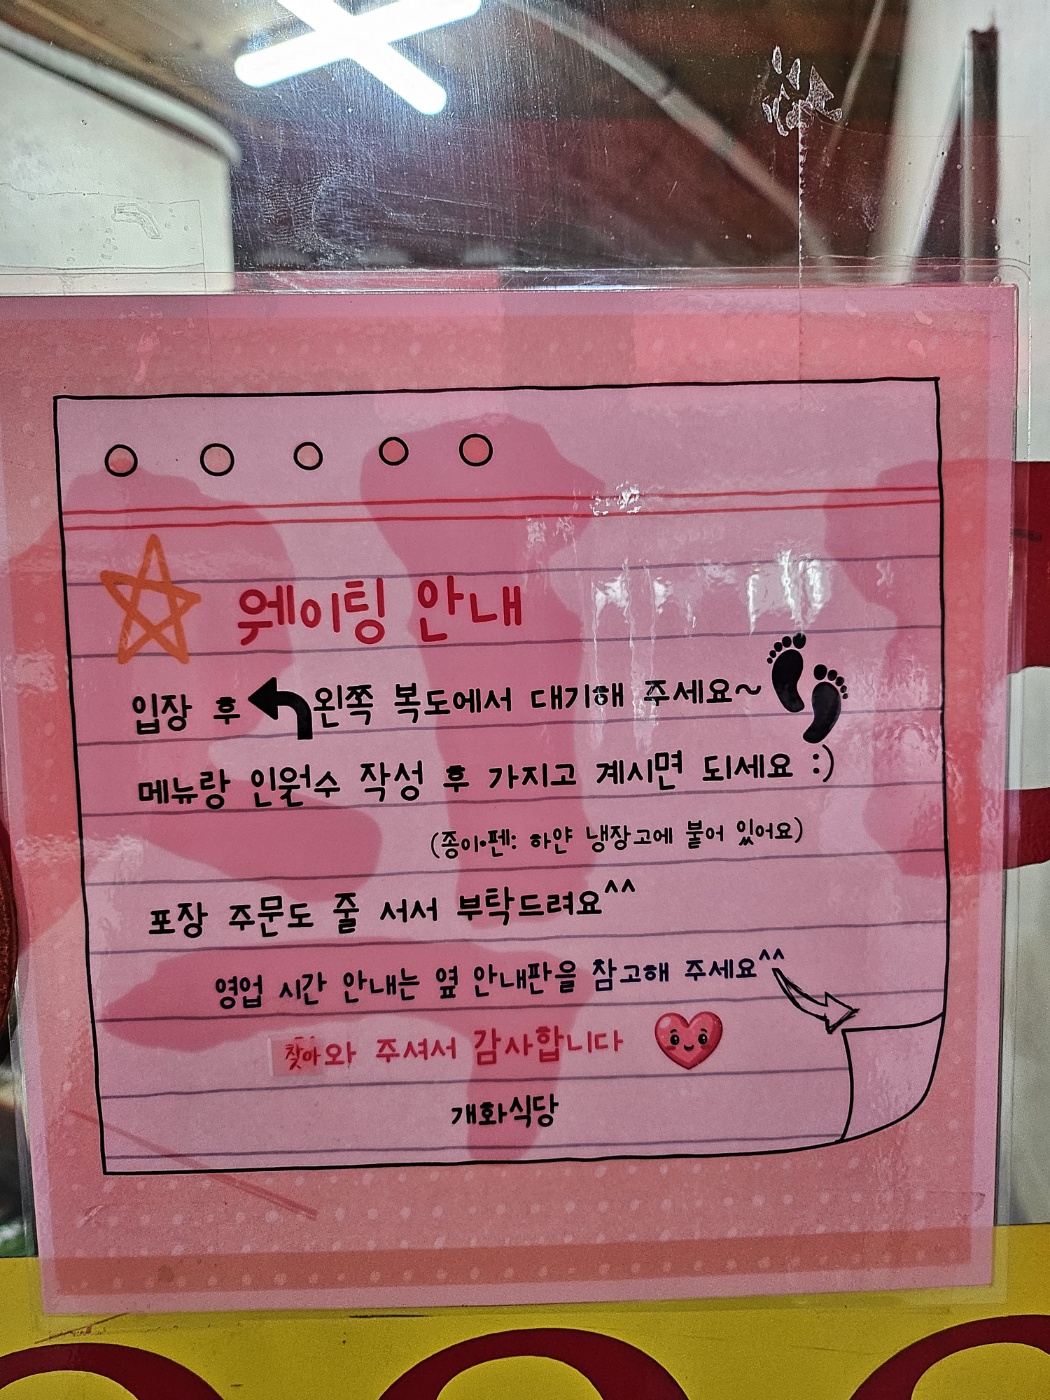 웨이팅 안내
입장 후 왼쪽 복도에서 대기해 주세요~
메뉴랑 인원수 작성 후 가지고 계시면 되세요 :)
(종이•펜: 하얀 냉장고에 붙어 있어요)
포장 주문도 줄 서서 부탁드려요^^
영업 시간 안내는 옆 안내판을 참고해 주세요^^
찾아와 주셔서 감사합니다
개화식당